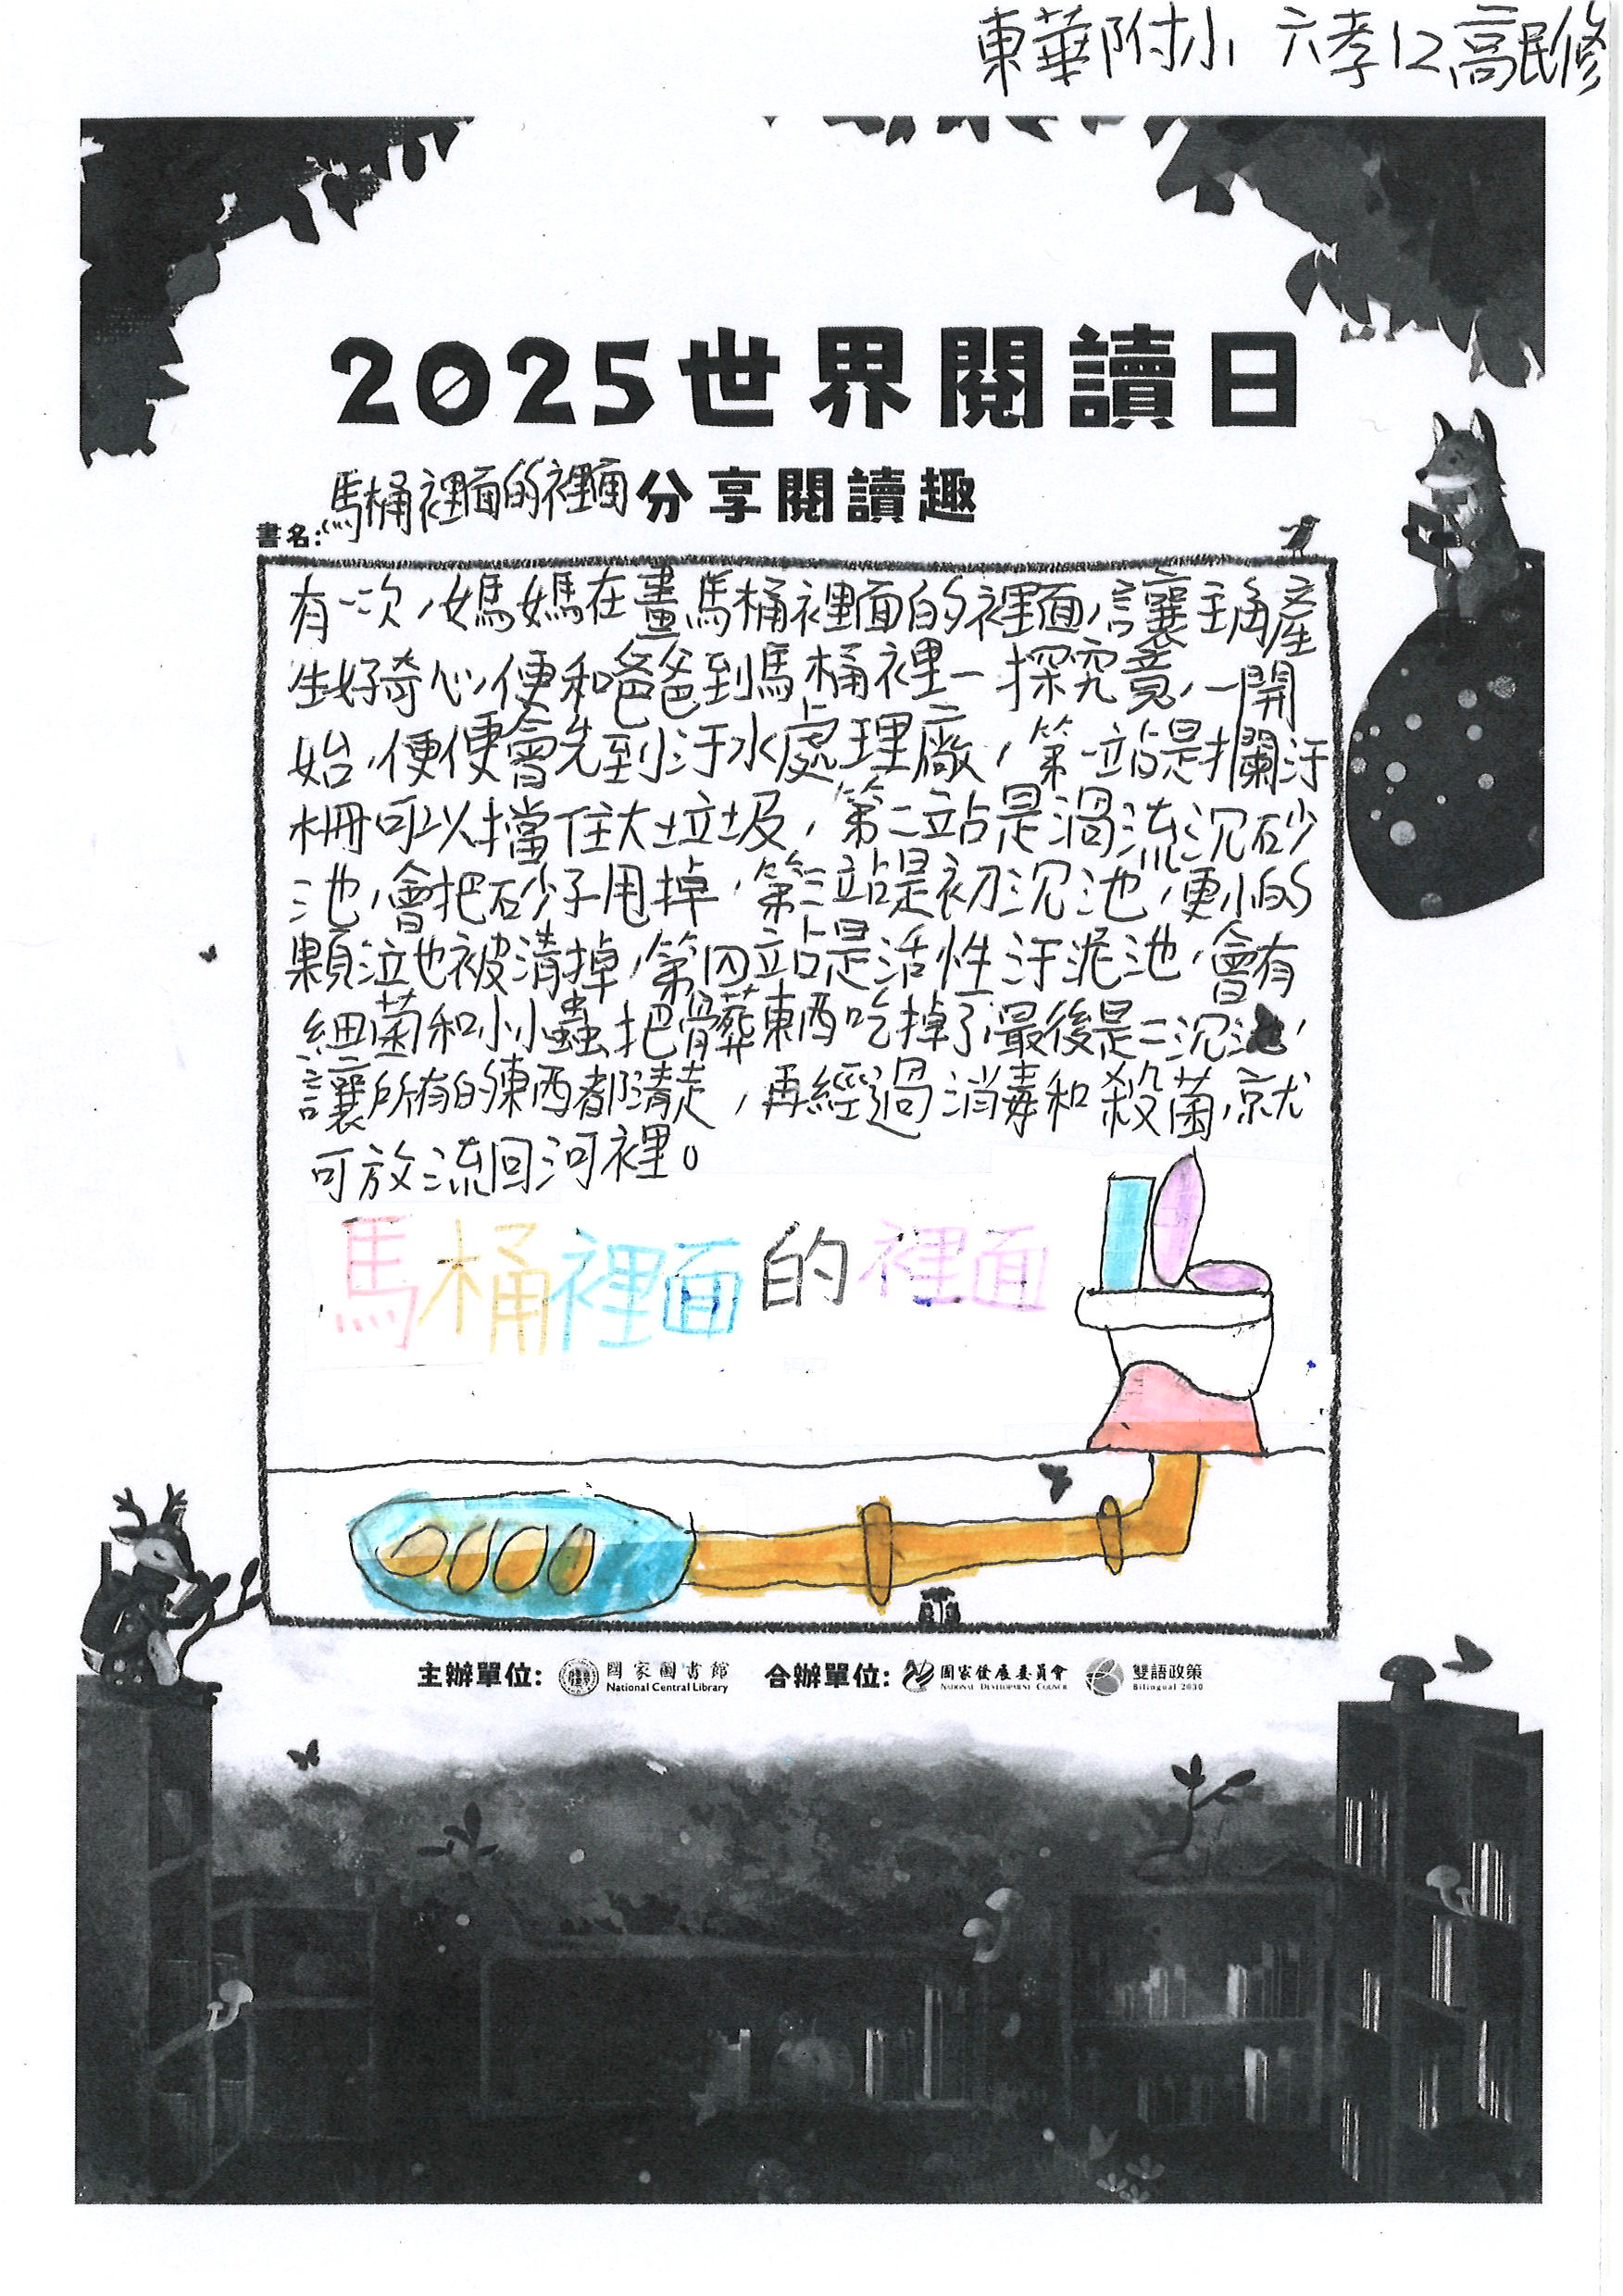 東華附小 六孝12高民修
2025世界閱讀日
書名:馬桶裡面的裡面分享閱讀趣
有一次,媽媽在畫馬桶裡面的裡面,讓主角產
生好奇心,便和爸爸到馬桶裡一探究竟,一開
始,便便會先到汙水處理廠,第一站是攔汙
柵可以擋住大垃圾,第二站是渦流沉砂
池,會把砂子甩掉,第三站是初沉池,更小的
顆泣也被清掉,第四站是活性汙泥池,會有
細菌和小小蟲把髒東西吃掉了,最後是二沉池,
讓所有的東西都清走,再經過消毒和殺菌,就
可放流回河裡。
馬桶裡面的裡面
主辦單位: 國家圖書館 National Central Library 合辦單位: 國家發展委員會 NATIONAL DEVELOPMENT COUNCIL 雙語政策 Bilingual 2030